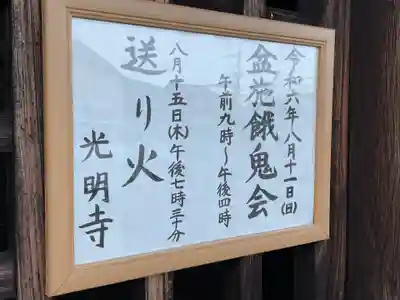 令和六年八月十一日(日)
盆施餓鬼会
午前九時〜午後四時
八月十五日(木)午後七時三十分
送り火
光明寺